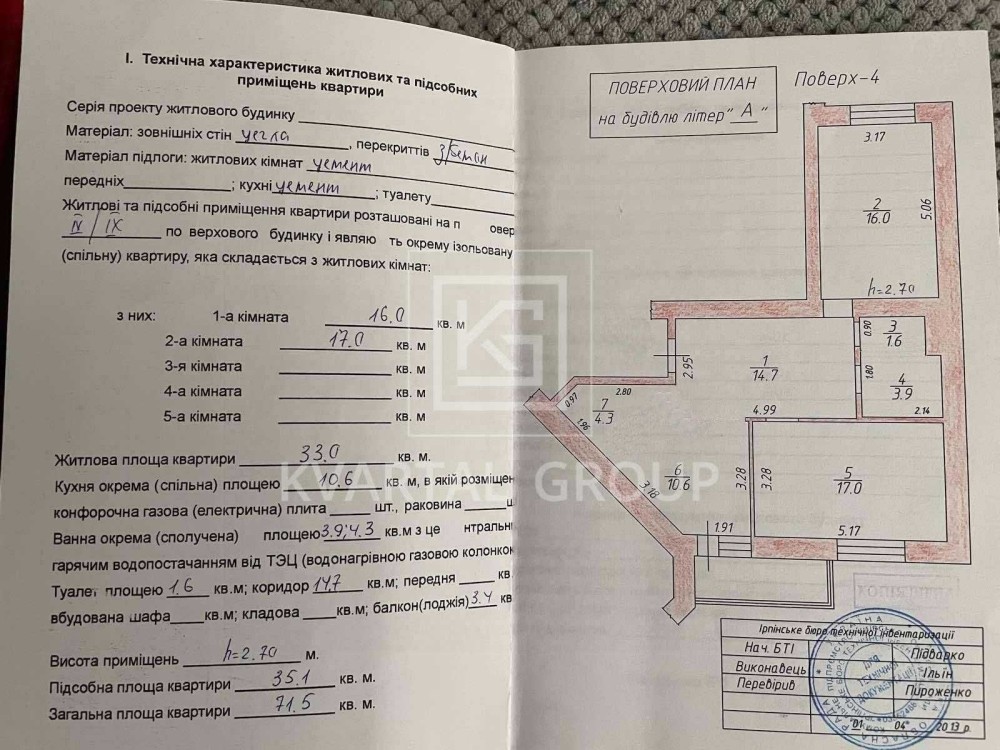 І. Технічна характеристика житлових та підсобних
приміщень квартири
Серія проекту житлового будинку
Матеріал: зовнішніх стін цегла, перекриттів з/бетон
Матеріал підлоги: житлових кімнат цемент
передніх ; кухні цемент ; туалету
Житлові та підсобні приміщення квартири розташовані на п овер
IV / IX по верхового будинку і являю ть окрему ізольовану
(спільну) квартиру, яка складається з житлових кімнат:
з них: 1-а кімната 16.0 кв. м
2-а кімната 17.0 кв. м
3-я кімната кв. м
4-а кімната кв. м
5-а кімната кв. м
Житлова площа квартири 33.0 кв. м.
Кухня окрема (спільна) площею 10.6 кв. м, в якій розміщен
конфорочна газова (електрична) плита шт., раковина ш
Ванна окрема (сполучена) площею 3.9; 4.3 кв.м з це нтральни
гарячим водопостачанням від ТЭЦ (водонагрівною газовою колонкою
Туалет площею 1.6 кв.м; коридор 14.7 кв.м; передня кв.
вбудована шафа кв.м; кладова кв.м; балкон(лоджія) 3.4 кв
Висота приміщень h=2.70 м.
Підсобна площа квартири 35.1 кв. м.
Загальна площа квартири 71.5 кв. м.
ПОВЕРХОВИЙ ПЛАН
на будівлю літер "А"
Поверх-4
3.17
2
16.0
5.06
h=2.70
0.90
3
1.6
1
14.7
2.95
1.80
4
3.9
2.14
4.99
2.80
0.97
7
4.3
1.96
6
10.6
3.16
3.28
3.28
5
17.0
1.91
5.17
KVARTAL GROUP
Ірпінське бюро технічної інвентаризації
Нач. БТІ Підварко
Виконавець Ільін
Перевірив Пироженко
"01" 04 2013 р.
УКРАЇНА
ДЛЯ
ТЕХНІЧНОЇ
ДОКУМЕНТАЦІЇ